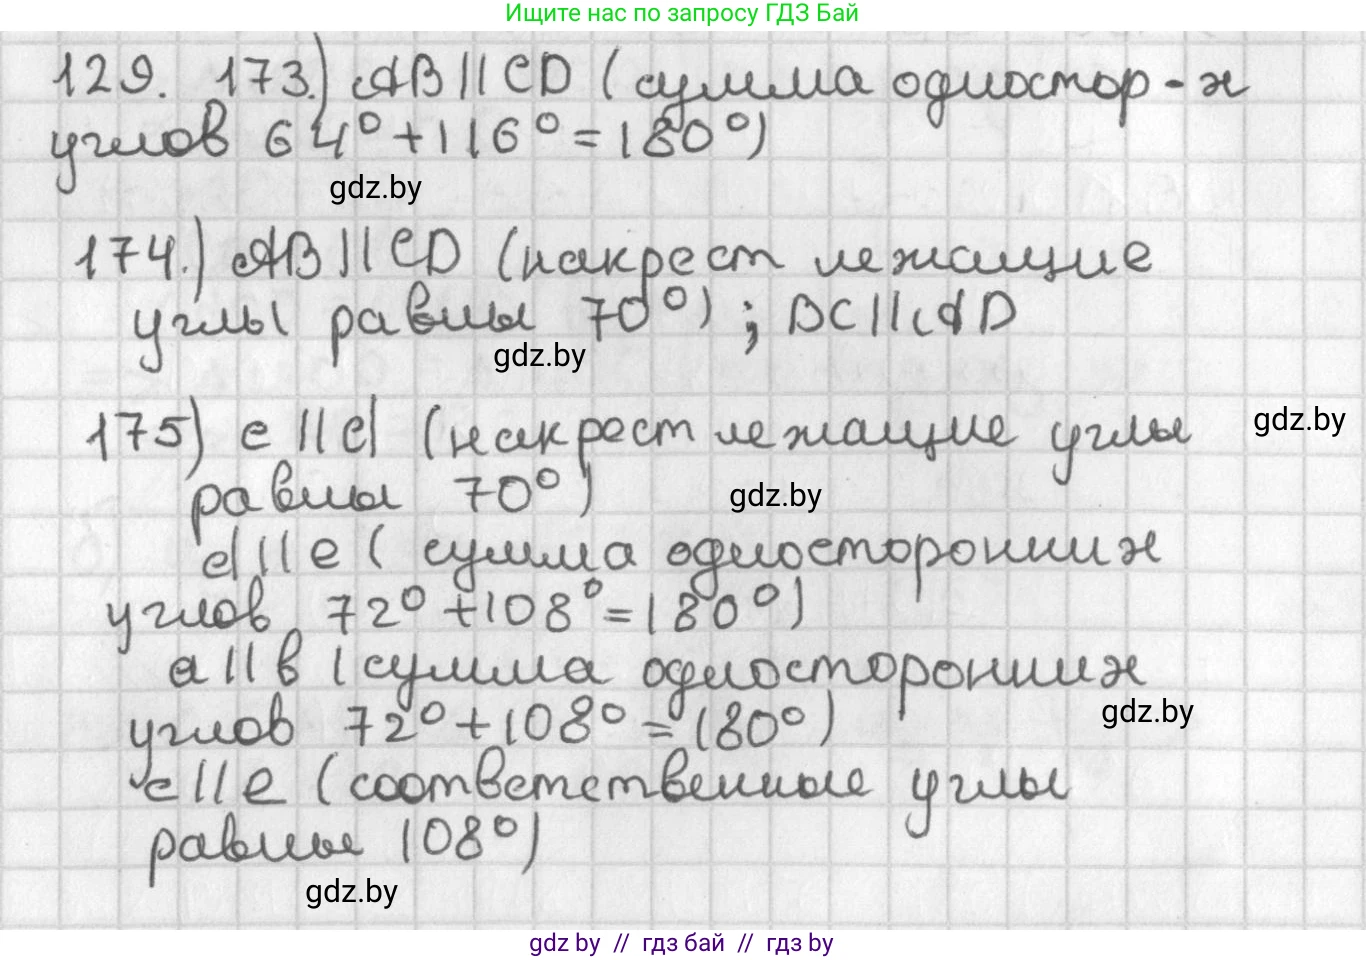 Ищите нас по запросу ГДЗ Бай
129. 173.) AB || CD (сумма одностор-х
углов 64° + 116° = 180°)
gdz.by
174.) AB || CD (накрест лежащие
углы равны 70°) ; BC || AD
gdz.by
175) c || d (накрест лежащие углы
gdz.by
равны 70°)
gdz.by
d || e ( сумма односторонних
углов 72° + 108° = 180°)
a || в (сумма односторонних
углов 72° + 108° = 180°)
gdz.by
c || e (соответственные углы
равны 108°)
gdz.by
gdz by // гдз бай // gdz by